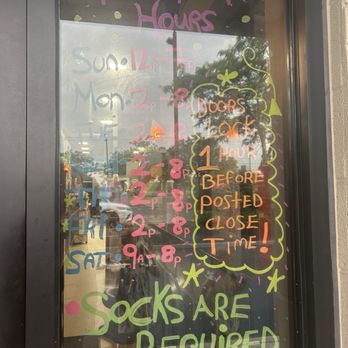 Hours
Sun • 12p - 7p
Mon 2p - 8p
Tue 2p - 8p
2p - 8p
Thu 2p - 8p
Fri • 2p - 8p
Sat • 9A - 8p
Doors
Lock
1 Hour
Before
Posted
Close
Time!
• Socks Are
Required